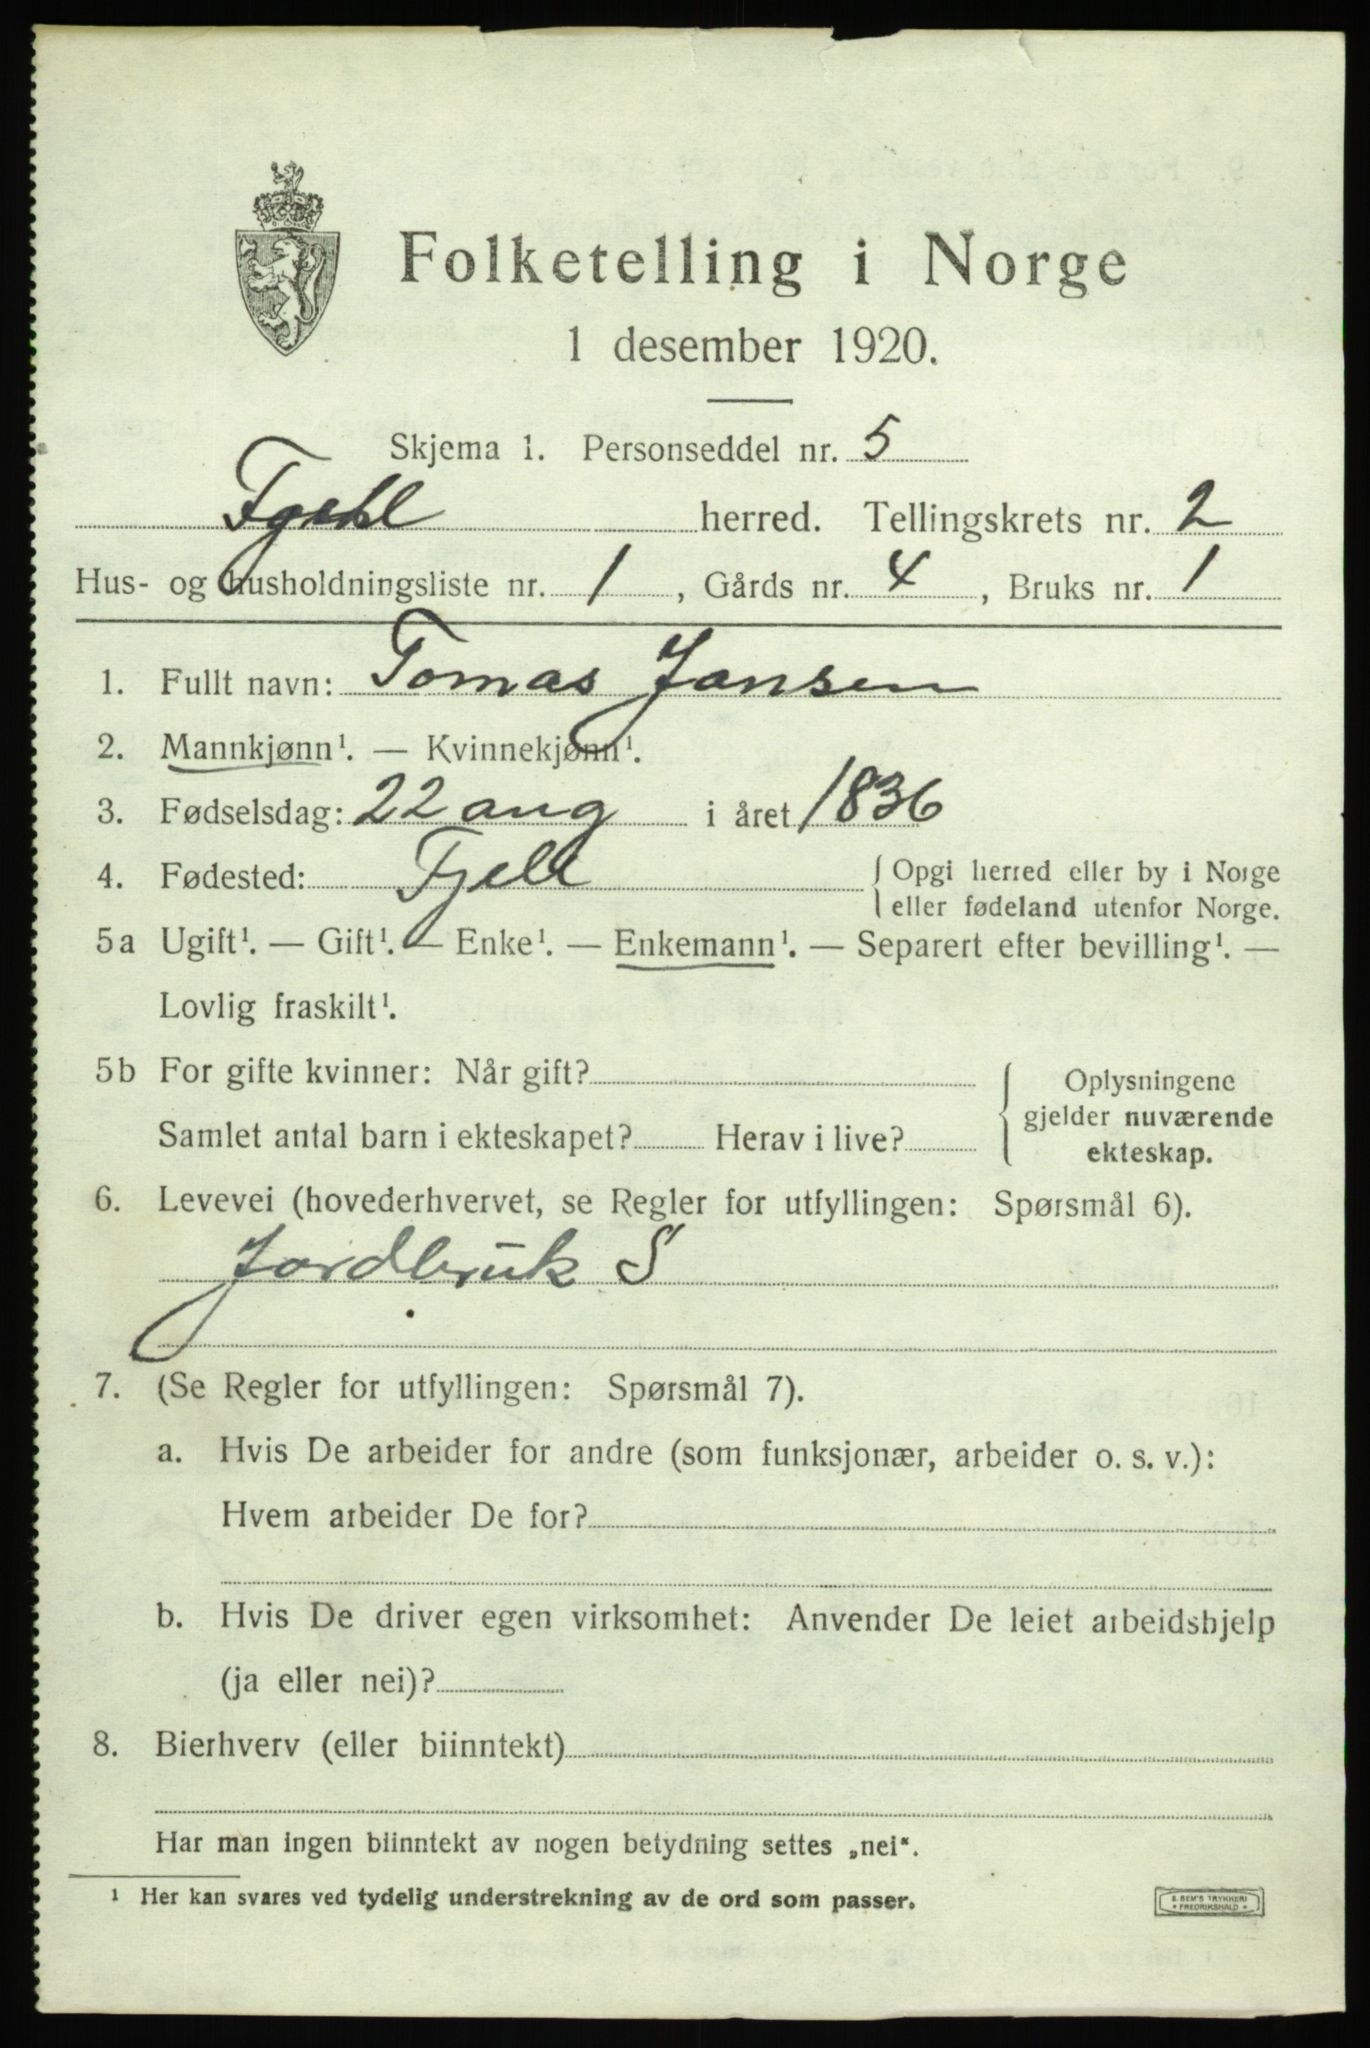 Folketelling i Norge
1 desember 1920.
Skjema 1. Personseddel nr. 5
Fjell herred. Tellingskrets nr. 2
Hus- og husholdningsliste nr. 1, Gårds nr. 4, Bruks nr. 1
1. Fullt navn: Tomas Jansen
2. Mannkjønn¹. — Kvinnekjønn¹.
3. Fødselsdag: 22 aug i året 1836
4. Fødested: Fjell { Opgi herred eller by i Norge
eller fødeland utenfor Norge.
5a Ugift¹. — Gift¹. — Enke¹. — Enkemann¹. — Separert efter bevilling¹. —
Lovlig fraskilt¹.
5b For gifte kvinner: Når gift? Oplysningene
gjelder nuværende
Samlet antal barn i ekteskapet? Herav i live? ekteskap.
6. Levevei (hovederhvervet, se Regler for utfyllingen: Spørsmål 6).
Jordbruk S
7. (Se Regler for utfyllingen: Spørsmål 7).
a. Hvis De arbeider for andre (som funksjonær, arbeider o. s. v.):
Hvem arbeider De for?
b. Hvis De driver egen virksomhet: Anvender De leiet arbeidshjelp
(ja eller nei)?
8. Bierhverv (eller biinntekt)
Har man ingen biinntekt av nogen betydning settes „nei“.
¹ Her kan svares ved tydelig understrekning av de ord som passer.
E. SEM'S TRYKKERI
* FREDRIKSHALD *